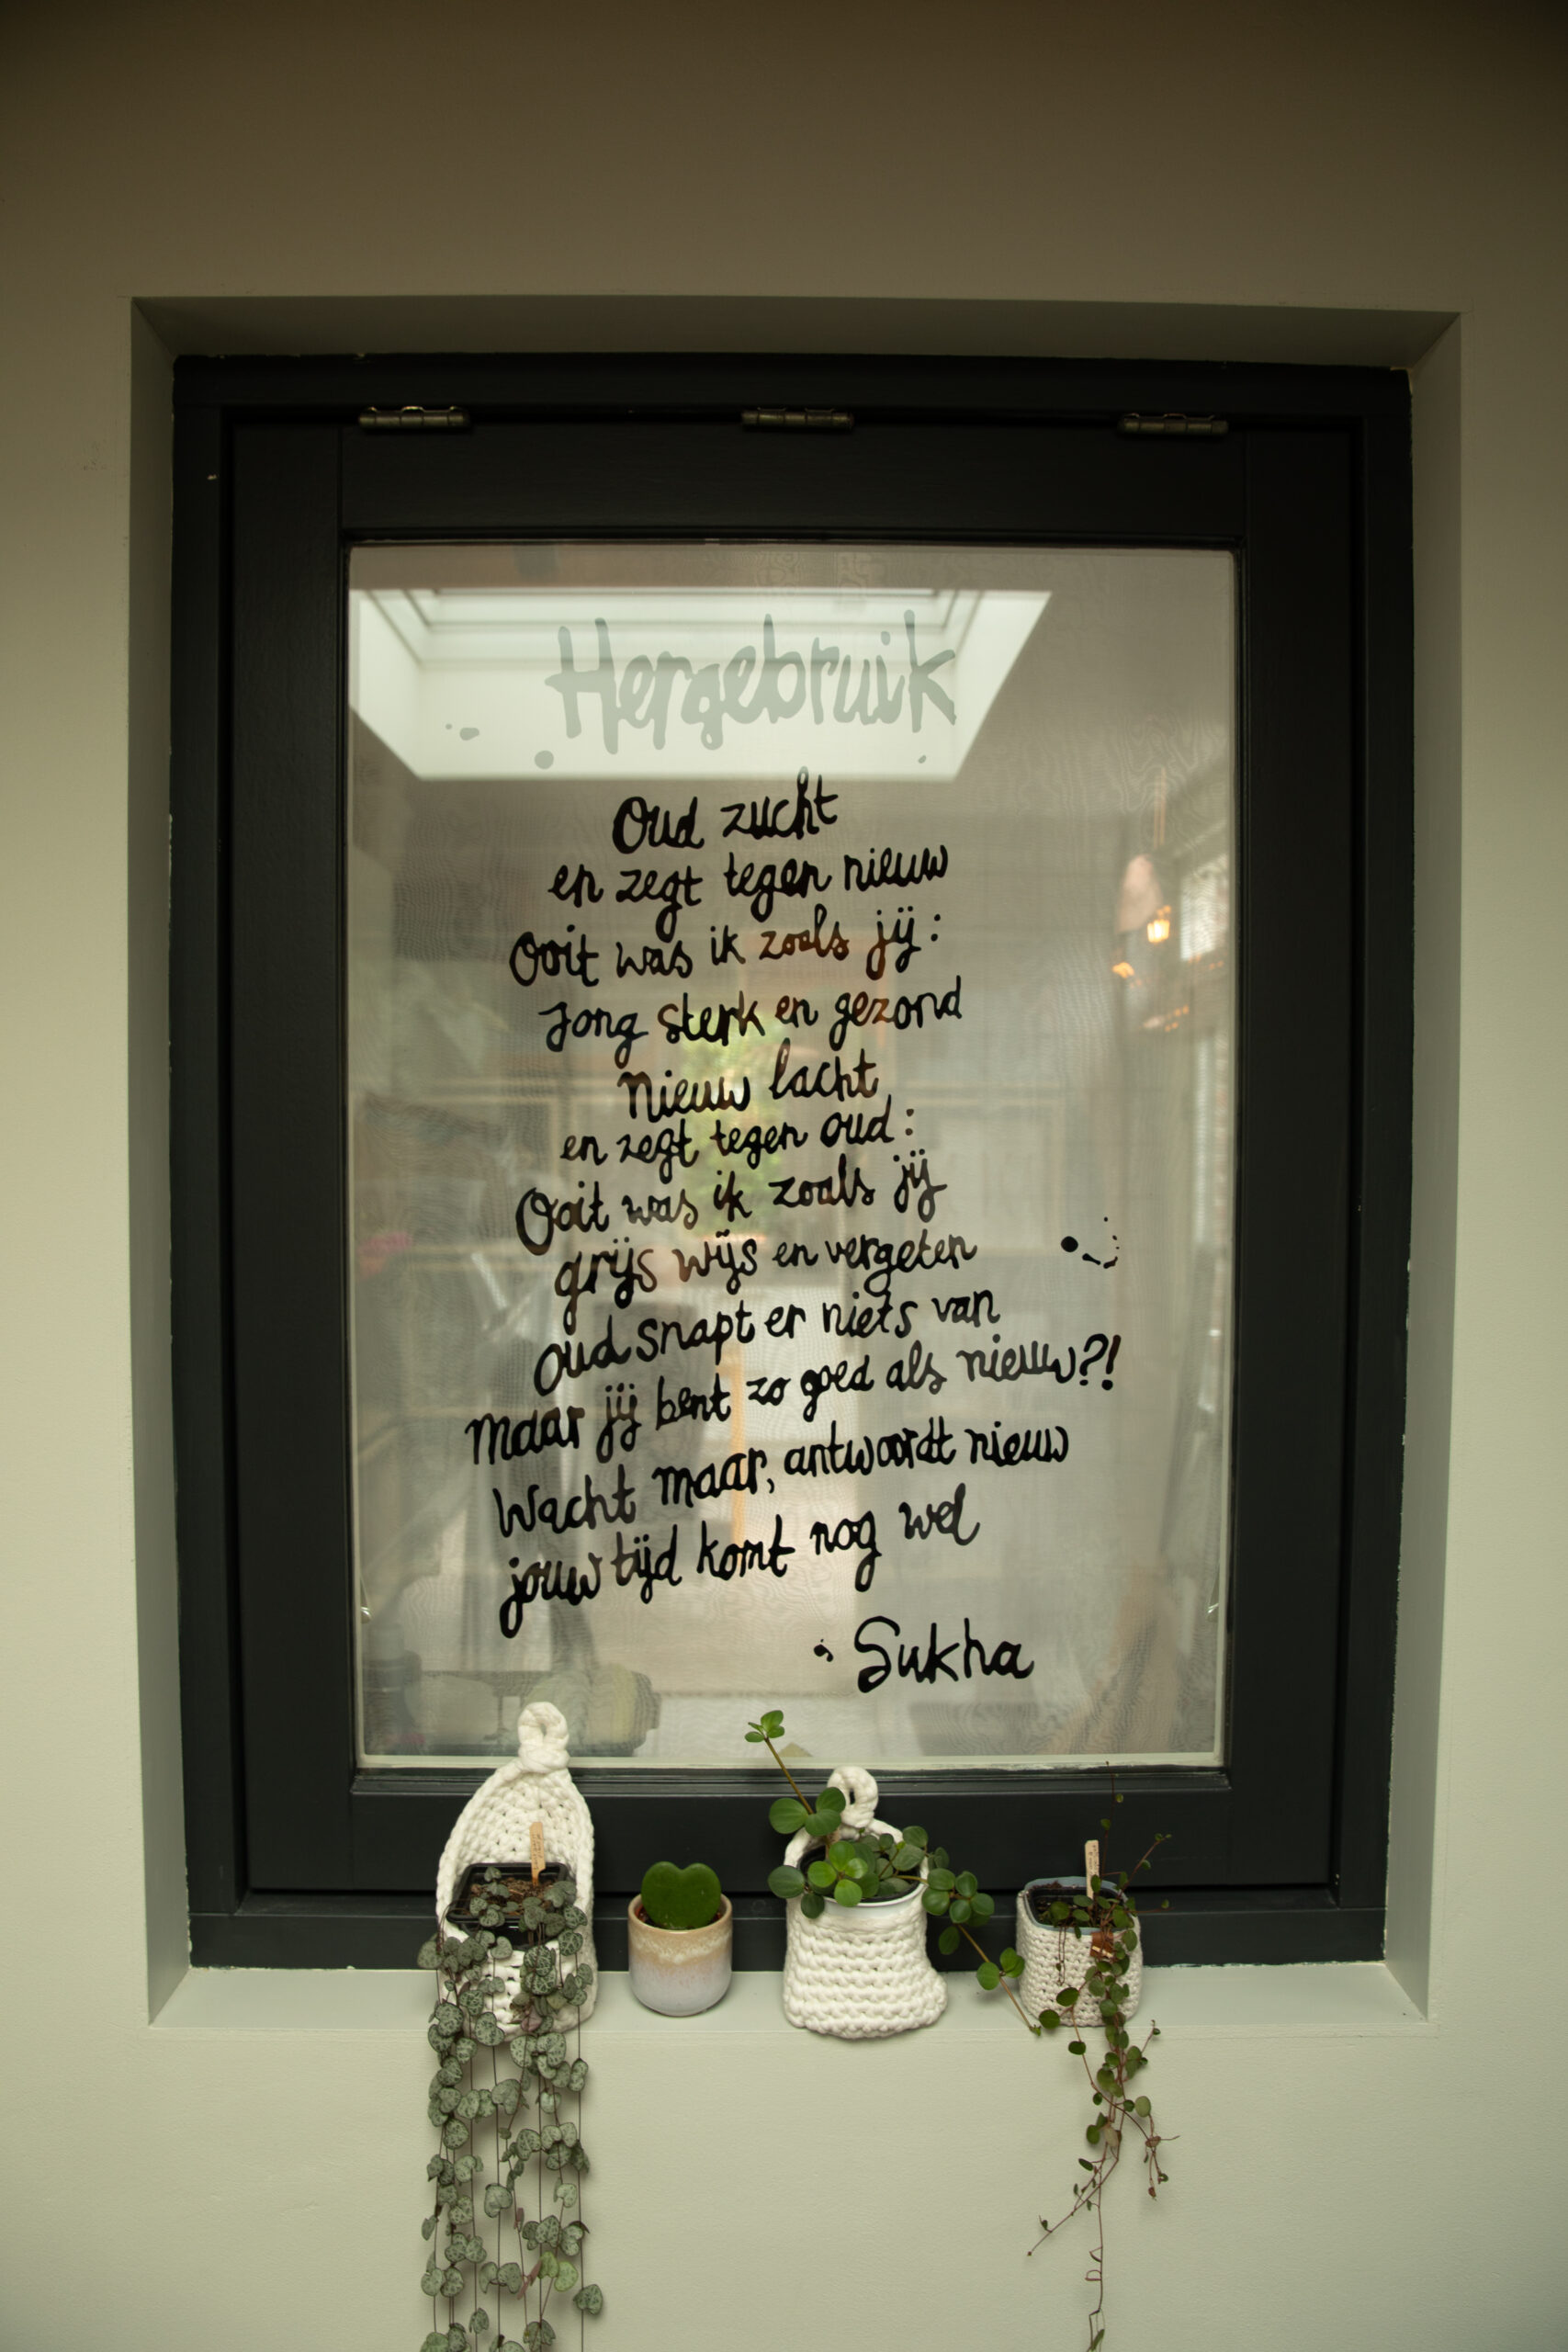 Hergebruik
Oud zucht
en zegt tegen nieuw
Ooit was ik zoals jij:
Jong sterk en gezond
Nieuw lacht
en zegt tegen oud:
Ooit was ik zoals jij
grijs wijs en vergeten
oud snapt er niets van
maar jij bent zo goed als nieuw?!
Wacht maar, antwoordt nieuw
jouw tijd komt nog wel
Sukha